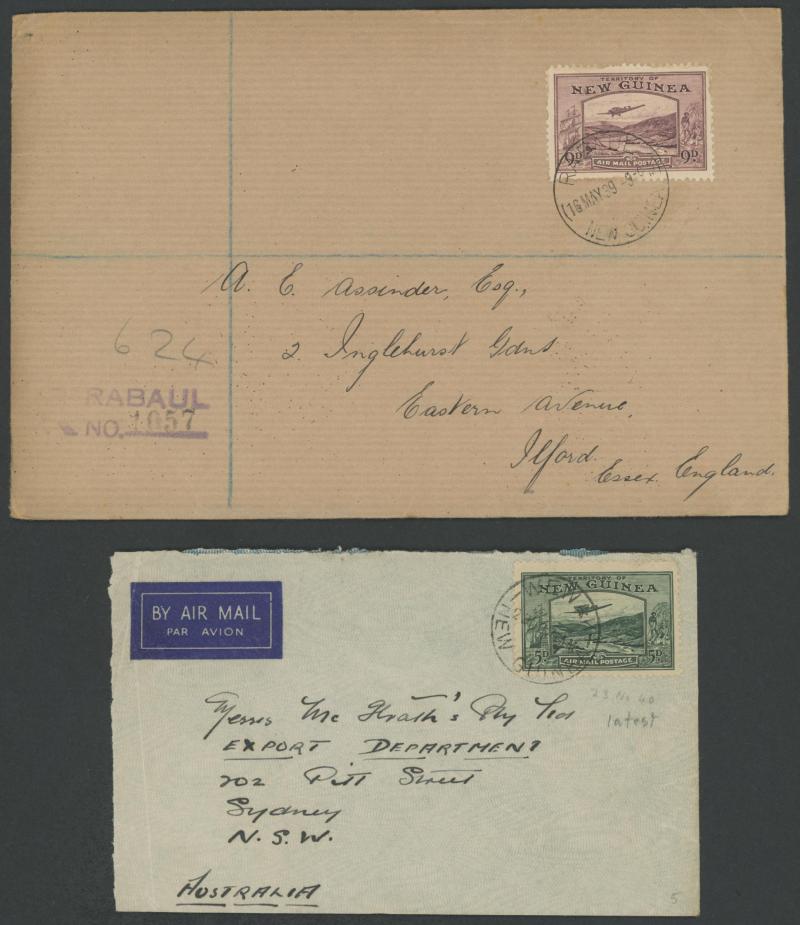 TERRITORY OF
NEW GUINEA
9D AIR MAIL POSTAGE 9D
16 MAY 39
NEW GUINEA
A. E. Assinder, Esq.,
2. Inglehurst Gdns
Eastern Avenue,
Ilford.
Essex. England.
624
RABAUL
NO. 1057
BY AIR MAIL
PAR AVION
TERRITORY OF
NEW GUINEA
5D AIR MAIL POSTAGE 5D
NEW GUINEA
23 No 40
latest
Messrs Mc Ilrath's Pty Ltd
EXPORT DEPARTMENT
202 Pitt Street
Sydney
N.S.W.
AUSTRALIA
5